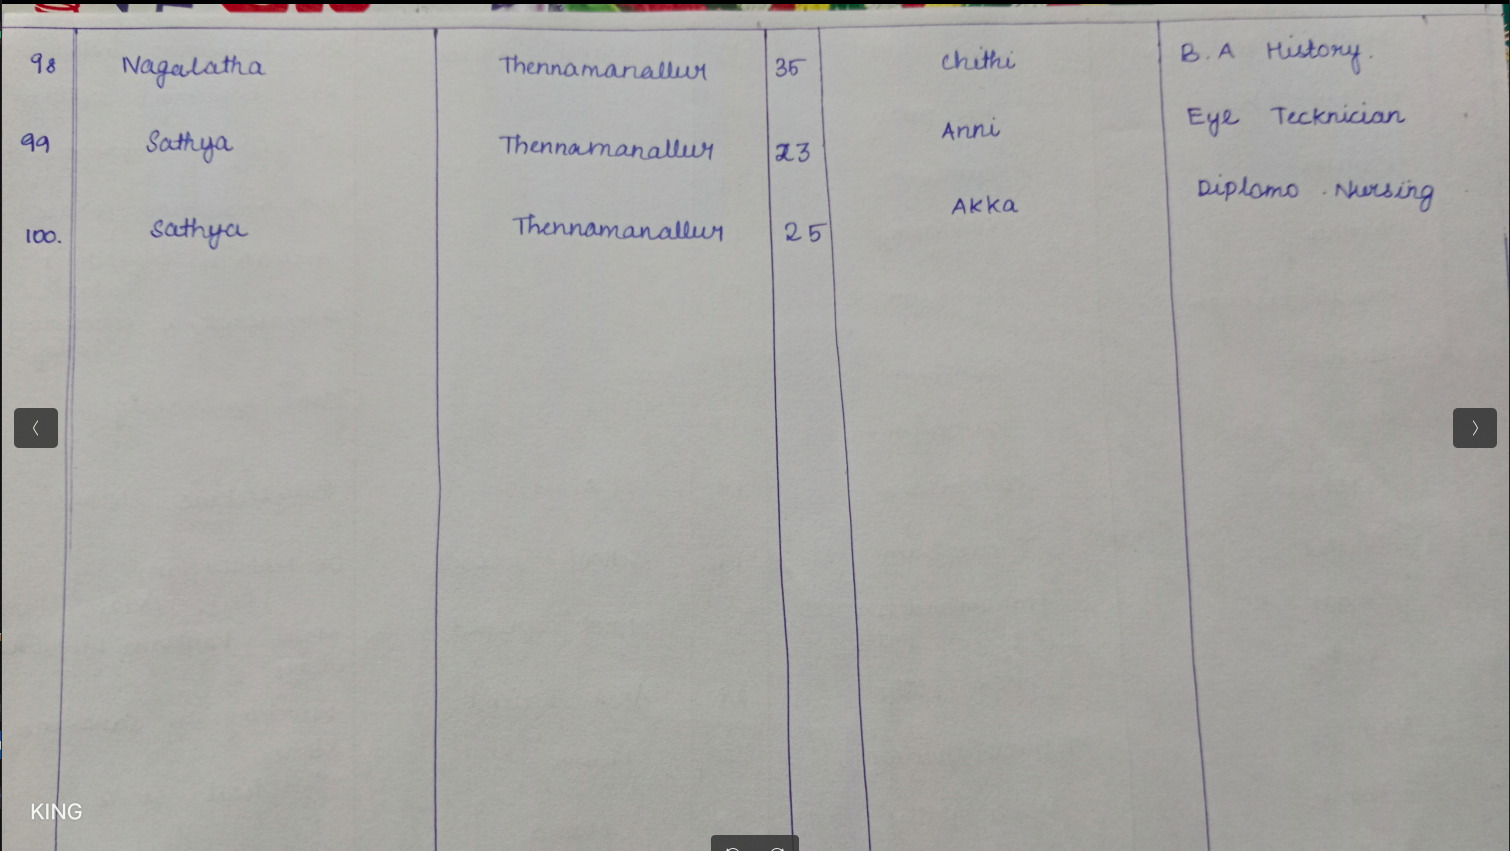 98 Nagalatha Thennamanallur 35 Chithi B.A History.
99 Sathya Thennamanallur 23 Anni Eye Tecknician
100. Sathya Thennamanallur 25 Akka Diplomo . Nursing
KING